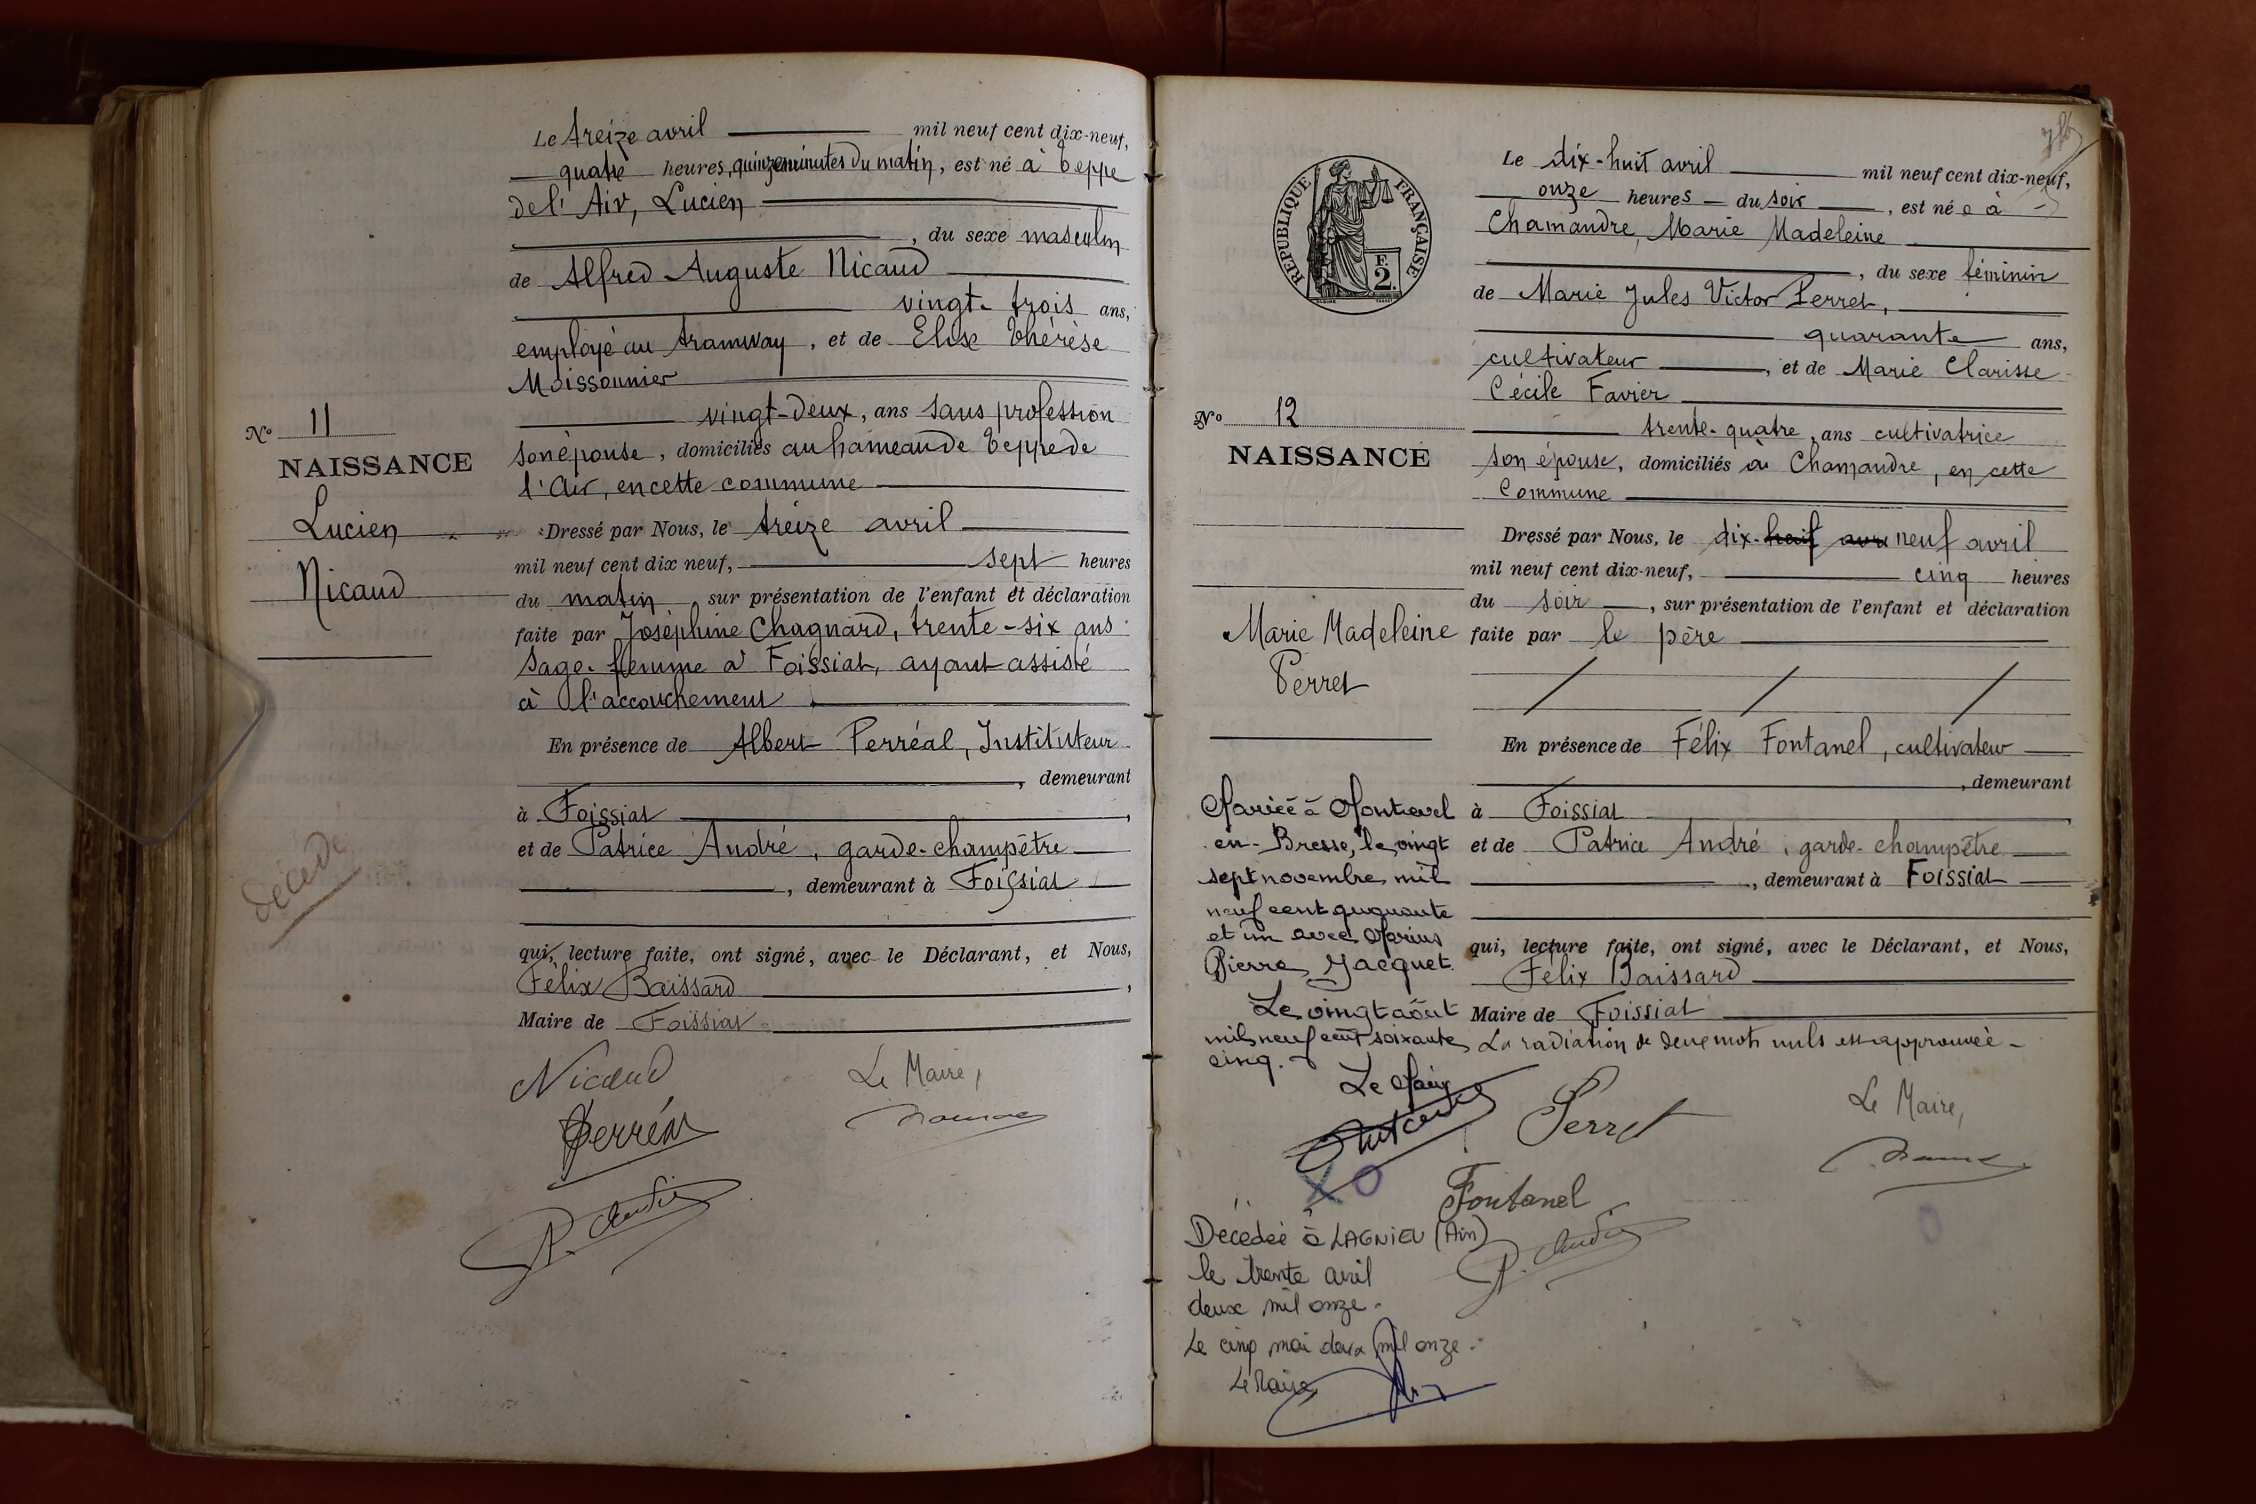 Le treize avril mil neuf cent dix-neuf,
quatre heures, quinze minutes du matin, est né à Teppe
de l'Air, Lucien
, du sexe masculin
de Alfred Auguste Nicaud
vingt-trois ans,
employé au tramway, et de Elise Thérèse
Moissonnier
vingt-deux, ans sans profession
son épouse, domiciliés au hameau de Teppe de
l'Air, en cette commune
Dressé par Nous, le treize avril
mil neuf cent dix neuf, sept heures
du matin, sur présentation de l'enfant et déclaration
faite par Joséphine Chagnard, trente-six ans
sage-femme à Foissiat, ayant assisté
à l'accouchement
En présence de Albert Perréal, Instituteur
, demeurant
à Foissiat,
et de Patrice André, garde-champêtre
, demeurant à Foissiat
qui, lecture faite, ont signé, avec le Déclarant, et Nous,
Félix Baissard,
Maire de Foissiat
Nicaud
Le Maire,
Perréal
P. André
No 11
NAISSANCE
Lucien
Nicaud
décédé
RÉPUBLIQUE FRANÇAISE
F.
2.
Le dix-huit avril mil neuf cent dix-neuf,
onze heures du soir, est née à
Chamandre, Marie Madeleine
, du sexe féminin
de Marie Jules Victor Perret,
quarante ans,
cultivateur, et de Marie Clarisse
Cécile Favier
trente-quatre, ans cultivatrice
son épouse, domiciliés à Chamandre, en cette
Commune
Dressé par Nous, le dix-neuf avril
mil neuf cent dix-neuf, cinq heures
du soir, sur présentation de l'enfant et déclaration
faite par le père
En présence de Félix Fontanel, cultivateur
, demeurant
à Foissiat
et de Patrice André, garde-champêtre
, demeurant à Foissiat
qui, lecture faite, ont signé, avec le Déclarant, et Nous,
Félix Baissard
Maire de Foissiat
La radiation de deux mots nuls est approuvée
Perret
Le Maire,
Fontanel
P. André
No 12
NAISSANCE
Marie Madeleine
Perret
Mariée à Montrevel
en-Bresse, le vingt
sept novembre mil
neuf cent quarante
et un avec Marius
Pierre Jacquet.
Le vingt août
mil neuf cent soixante
cinq.
Le Maire
Décédée à LAGNIEU (Ain)
le trente avril
deux mil onze.
Le cinq mai deux mil onze.
Le Maire